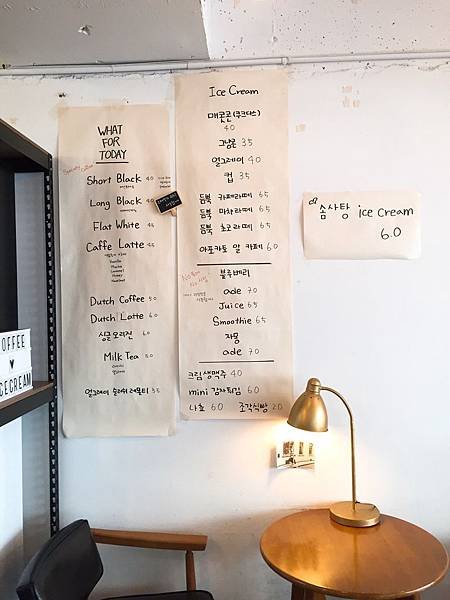 WHAT
FOR
TODAY
Short Black 4.0
Long Black 4.0
Flat White 4.5
Caffe Latte 4.5
Vanilla
Mocha
Caramel
Honey
Hazelnut
Dutch Coffee 5.0
Dutch Latte 6.0
싱글 오리진 6.0
Milk Tea 5.0
얼그레이 슬러쉬 레몬티 5.5
Ice Cream
매콘콘(쿠크다스)
4.0
그냥콘 3.5
얼그레이 4.0
컵 3.5
듬뿍 카페라떼 6.5
듬뿍 마차라떼 6.5
듬뿍 초코라떼 6.5
아포카토 알 카페 6.0
블루베리
ade 7.0
Juice 6.5
Smoothie 6.5
자몽
ade 7.0
크림 생맥주 4.0
mini 감자튀김 6.0
나쵸 6.0 조각식빵 2.0
솜사탕 ice cream
6.0
OFFEE
♥
ICECREAM